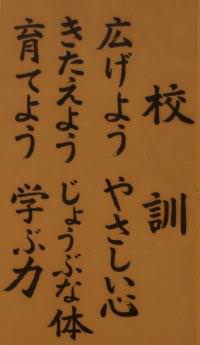 校訓
広げよう やさしい心
きたえよう じょうぶな体
育てよう 学ぶ力